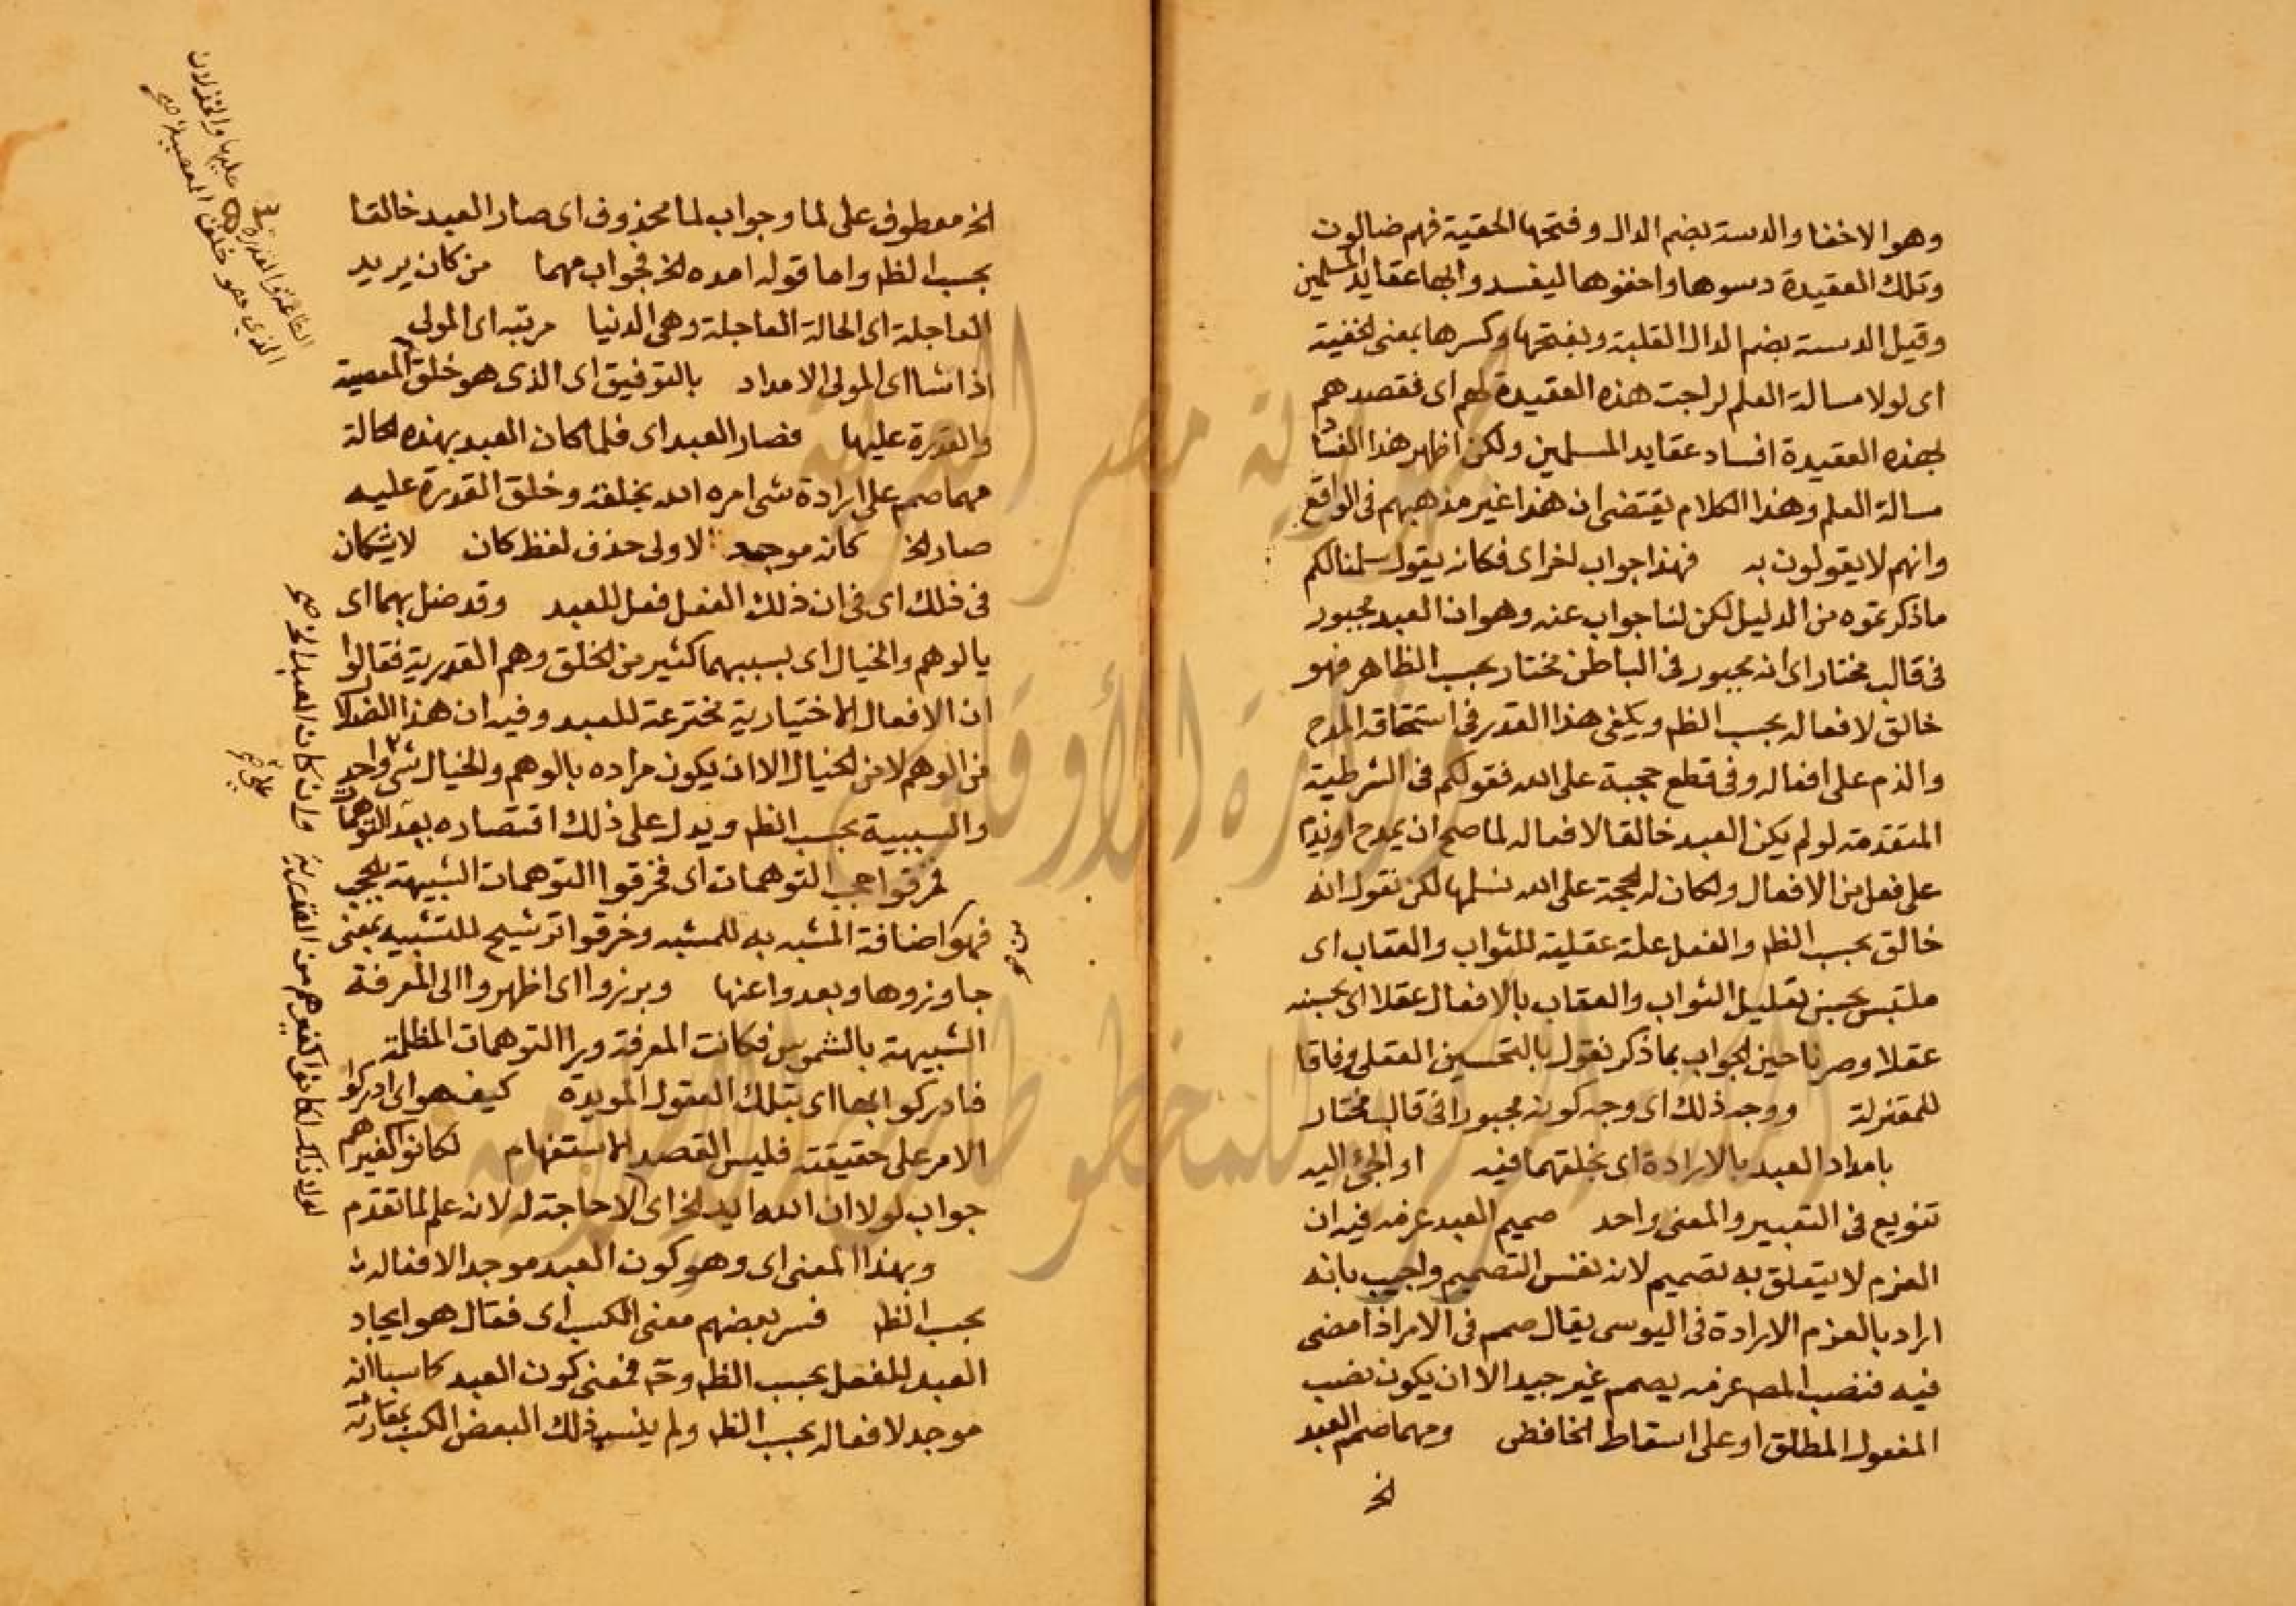 وهو الاخفا والدسة بضم الدال وفتحها الحقية فهم ضالون
وتلك العقيدة دسوها واخفوها ليفسدوا بها عقايد المسلمين
وقيل الدسة بضم الدال القلبة وبفتحها وكسرها بمعنى الخفية
اى لولا مسالة العلم لراجت هذه العقيدة لهم اى فقصدهم
بهذه العقيدة افساد عقايد المسلمين ولكن اظهر هذا الفساد
مسالة العلم وهذا الكلام يقتضى ان هذا غير مذهبهم فى الواقع
وانهم لا يقولون به فهذا جواب اخر اى فكانه يقول سلمنا لكم
ما ذكرتموه من الدليل لكن لنا جواب عنه وهو ان العبد مجبور
فى قالب مختار اى انه مجبور فى الباطن مختار بحسب الظاهر فهو
خالق لافعاله بحسب الظم ويكفى هذا القدر فى استحقاقه المدح
والذم على افعاله وفى قطع حجبة على الله فقولكم فى الشرطية
المتقدمة لو لم يكن العبد خالقا لافعاله لما صح ان يمدح او يذم
على فعل من الافعال ولكان له الحجة على الله نسلمها لكن نقول انه
خالق بحسب الظم والفعل علة عقلية للثواب والعقاب اى
ملتبس بحسن تعليل الثواب والعقاب بالافعال عقلا اى بحسنه
عقلا وصرنا حين الجواب بما ذكر نقول بالتحسين العقلى وفاقا
للمعتزلة ووجه ذلك اى وجه كونه مجبورا فى قالب مختار
بامداد العبد بالارادة اى بخلقهما فيه او الجئ اليه
تنويع فى التعبير والمعنى واحد صميم العبد عزمه فيه ان
العزم لا يتعلق به تصميم لانه نفس التصميم واجيب بانه
اراد بالعزم الارادة فى اليوسى يقال صمم فى الامر اذا مضى
فيه فنصب المص عزمه بصمم غير جيد الا ان يكون نصب
المفعول المطلق او على اسقاط الخافض ومهما صمم العبد
الخ
الخ معطوف على لما وجواب لما محذوف اى صار العبد خالقا
بحسب الظم واما قوله امده الخ فجواب مهما من كان يريد
العاجلة اى الحالة العاجلة وهى الدنيا مرتبه اى المولى
اذا شا اى المولى الامداد بالتوفيق اى الذى هو خلق المعصية
والقدرة عليها فصار العبد اى فلما كان العبد بهذه الحالة
مهما صمم على ارادة شى امره الله بخلقه وخلق القدرة عليه
صار الخ كانه موجد الاولى حذف لفظ كان لا يشكان
فى ذلك اى فى ان ذلك الفعل فعل للعبد وقد ضل بهما اى
بالوهم والخيال اى بسببهما كثير من الخلق وهم القدرية فقالوا
ان الافعال الاختيارية مخترعة للعبد وفيه ان هذا الضلال
من الوهم لا من الخيال الا ان يكون مراده بالوهم والخيال شى واحد
والسببية بحسب الظم ويدل على ذلك اقتصاره بعد التوهمات
فخرقوا حجب التوهمات اى فخرقوا التوهمات الشبيهة بالحجب
فهو اضافة المشبه به للمشبه وخرقوا ترشيح للتشبيه بمعنى
جاوزوها وبعدوا عنها وبرزوا اى اظهروا الى المعرفة
الشبيهة بالشموس فكانت المعرفة ورا التوهمات المظلمة
فادركوا بها اى بتلك العقول المويدة كيف هو اى ادركوا
الامر على حقيقته فليس القصد الاستفهام لكانوا كغيرهم
جواب لولا ان الله ايد الخ اى لا حاجة له لانه علم لما تقدم
وبهذا المعنى اى وهو كون العبد موجد الافعاله
بحسب الظم فسر بعضهم معنى الكسب اى فقال هو ايجاد
العبد للفعل بحسب الظم وح فمعنى كون العبد كاسبا انه
موجد لافعاله بحسب الظم ولم ينسب ذلك البعض الكسب بمقارنة
الطاعة والقدرة عليها والخذلان
الذي هو خلق المعصية صح
لولا ذلك لكانوا كغيرهم من القدرية وان كان العبد